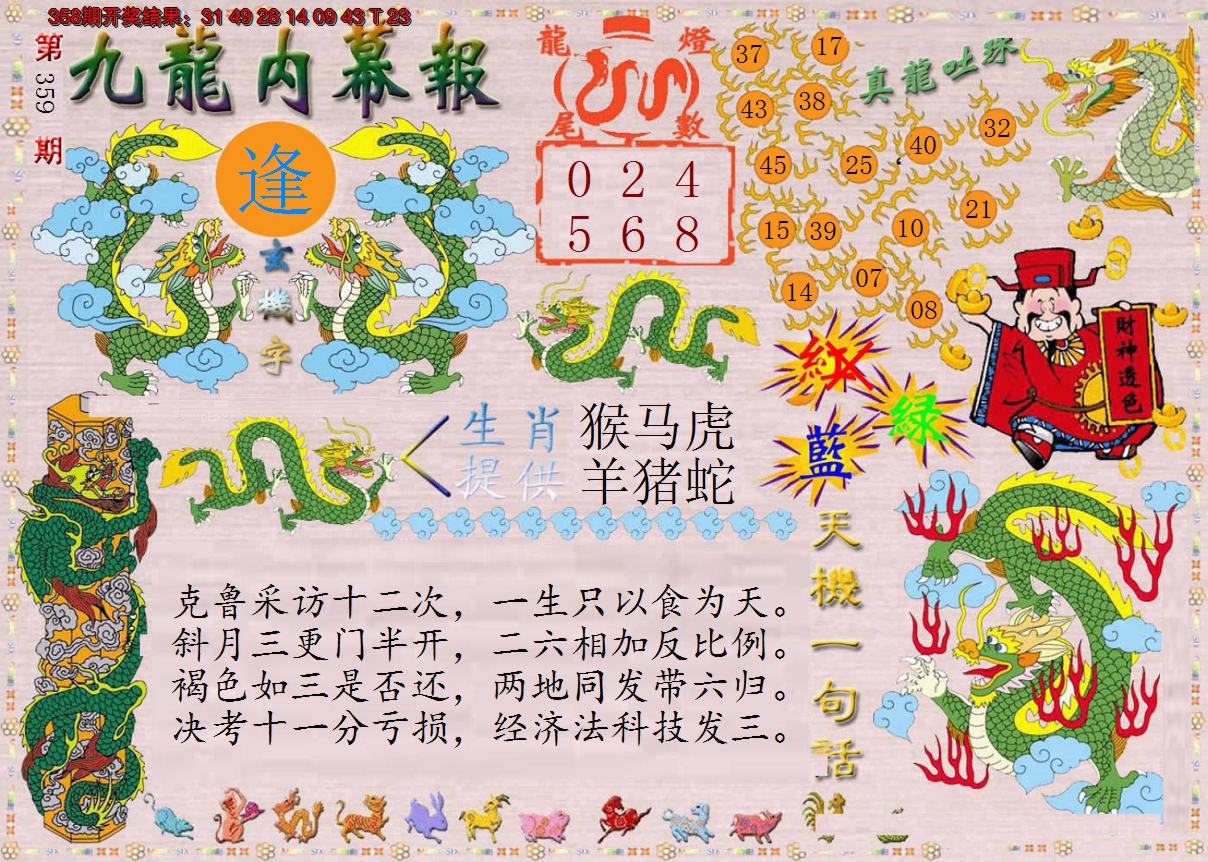 358期开奖结果：31 49 28 14 09 43 T 23
第359期
九龍内幕報
逢
玄機字
龍燈
尾數
0 2 4
5 6 8
真龍吐珠
37 17
43 38
45 25 40 32
15 39 10 21
14 07 08
紅
綠
藍
財神透色
生肖
提供
猴马虎
羊猪蛇
天機一句話
克鲁采访十二次，一生只以食为天。
斜月三更门半开，二六相加反比例。
褐色如三是否还，两地同发带六归。
决考十一分亏损，经济法科技发三。